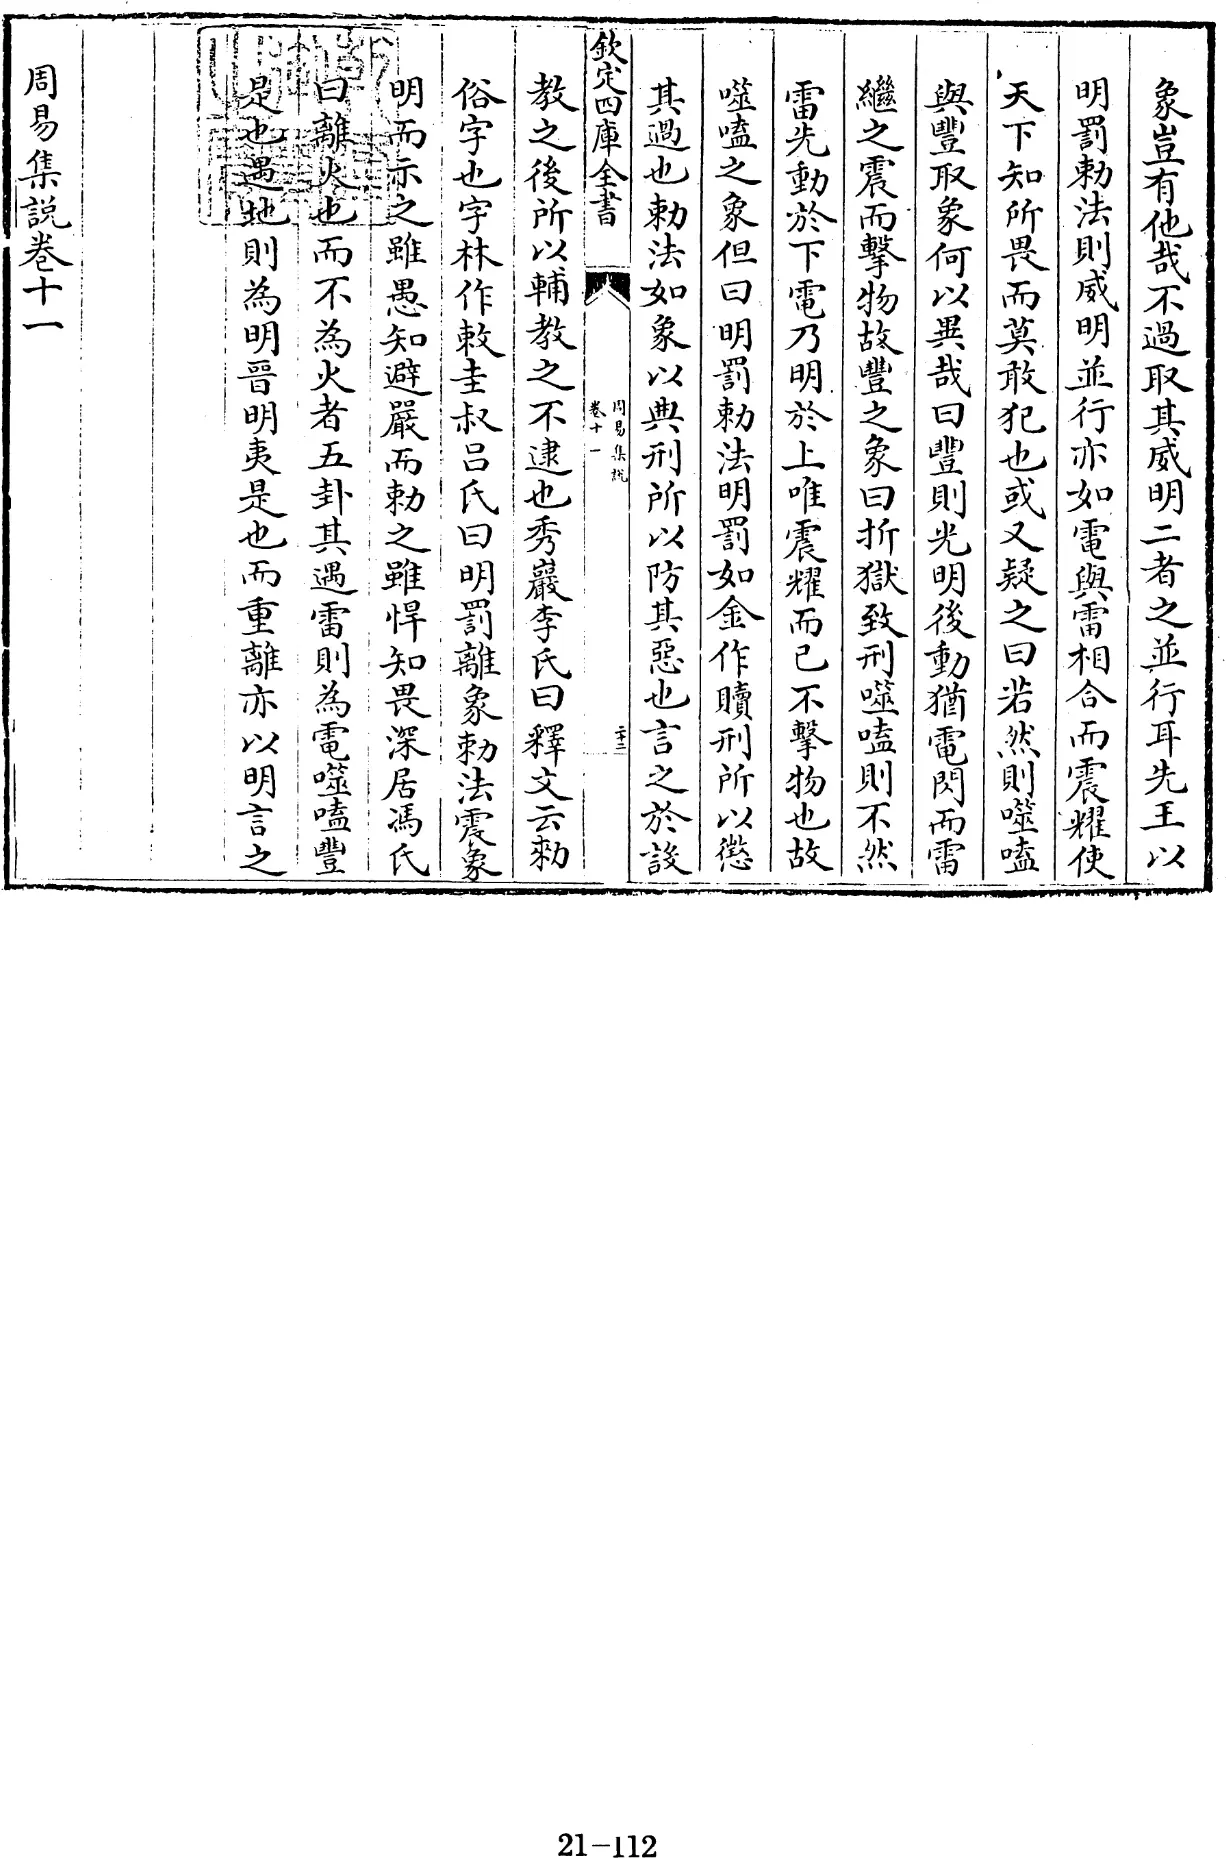 象豈有他哉不過取其威明二者之並行耳先王以
明罰勅法則威明並行亦如電與雷相合而震耀使
天下知所畏而莫敢犯也或又疑之曰若然則噬嗑
與豐取象何以異哉曰豐則光明後動猶電閃而雷
繼之震而擊物故豐之象曰折獄致刑噬嗑則不然
雷先動於下電乃明於上唯震耀而已不擊物也故
噬嗑之象但曰明罰勅法明罰如金作贖刑所以懲
其過也勅法如象以典刑所以防其惡也言之於設
欽定四庫全書
周易集說
卷十一
二十三
教之後所以輔教之不逮也秀巖李氏曰釋文云勑
俗字也字林作敕圭叔呂氏曰明罰離象勅法震象
明而示之雖愚知避嚴而勅之雖悍知畏深居馮氏
曰離火也而不為火者五卦其遇雷則為電噬嗑豐
是也遇地則為明晉明夷是也而重離亦以明言之
周易集說卷十一
21-112